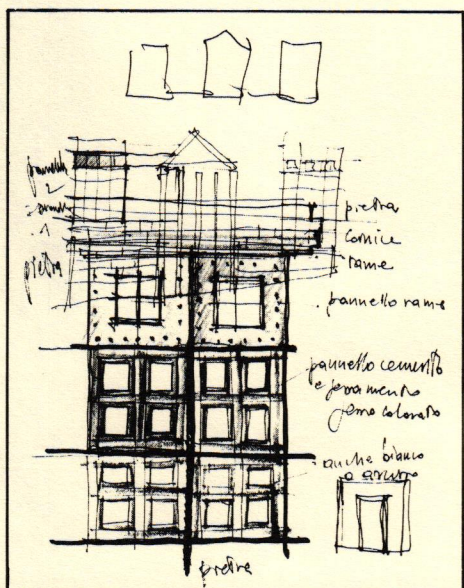 pannelli
2
1
pietra
pietra
cornice
rame
pannello rame
pannello cemento
e serramento
ferro colorato
anche bianco
o azzurro
pietra